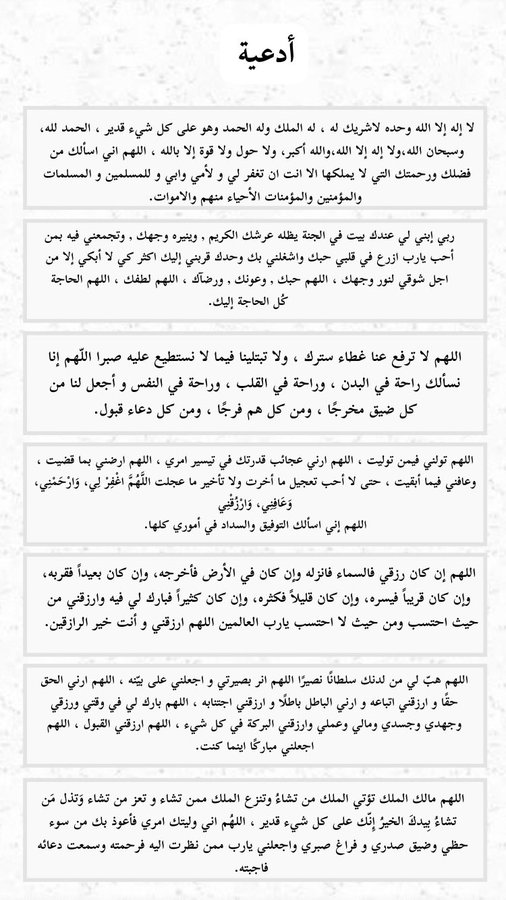 أدعية
لا إله إلا الله وحده لاشريك له ، له الملك وله الحمد وهو على كل شيء قدير ، الحمد لله،
وسبحان الله،ولا إله إلا الله،والله أكبر، ولا حول ولا قوة إلا بالله ، اللهم اني اسألك من
فضلك ورحمتك التي لا يملكها الا انت ان تغفر لي و لأمي وابي و للمسلمين و المسلمات
والمؤمنين والمؤمنات الأحياء منهم والاموات.
ربي إبني لي عندك بيت في الجنة يظله عرشك الكريم , وينيره وجهك , وتجمعني فيه بمن
أحب يارب ازرع في قلبي حبك واشغلني بك وحدك قربني إليك اكثر كي لا أبكي إلا من
اجل شوقي لنور وجهك ، اللهم حبك , وعونك , ورضآك ، اللهم لطفك ، اللهم الحاجة
كُل الحاجة إليك.
اللهم لا ترفع عنا غطاء سترك ، ولا تبتلينا فيما لا نستطيع عليه صبرا اللّهم إنا
نسألك راحة في البدن ، وراحة في القلب ، وراحة في النفس و أجعل لنا من
كل ضيق مخرجًا ، ومن كل هم فرجًا ، ومن كل دعاء قبول.
اللهم تولني فيمن توليت ، اللهم ارني عجائب قدرتك في تيسير امري ، اللهم ارضني بما قضيت ،
وعافني فيما أبقيت ، حتى لا أحب تعجيل ما أخرت ولا تأخير ما عجلت اللَّهُمَّ اغْفِرْ لِي، وَارْحَمْنِي،
وَعَافِنِي، وَارْزُقْنِي
اللهم إني اسألك التوفيق والسداد في أموري كلها.
اللهم إن كان رزقي فالسماء فانزله وإن كان في الأرض فأخرجه، وإن كان بعيداً فقربه،
وإن كان قريباً فيسره، وإن كان قليلاً فكثره، وإن كان كثيراً فبارك لي فيه وارزقني من
حيث احتسب ومن حيث لا احتسب يارب العالمين اللهم ارزقني و أنت خير الرازقين.
اللهم هبّ لي من لدنك سلطانًا نصيرًا اللهم انر بصيرتي و اجعلني على بيّنه ، اللهم ارني الحق
حقًا و ارزقني اتباعه و ارني الباطل باطلًا و ارزقني اجتنابه ، اللهم بارك لي في وقتي ورزقي
وجهدي وجسدي ومالي وعملي وارزقني البركة في كل شيء ، اللهم ارزقني القبول ، اللهم
اجعلني مباركًا اينما كنت.
اللهم مالك الملك تؤتي الملك من تشاءُ وتنزع الملك ممن تشاء و تعز من تشاء وَتذل مَن
تشاءُ بِيدكَ الخيرُ إنّك على كل شيء قدير ، اللهُم اني وليتك امري فأعوذ بك من سوء
حظي وضيق صدري و فراغ صبري واجعلني يارب ممن نظرت اليه فرحمته وسمعت دعائه
فاجبته.